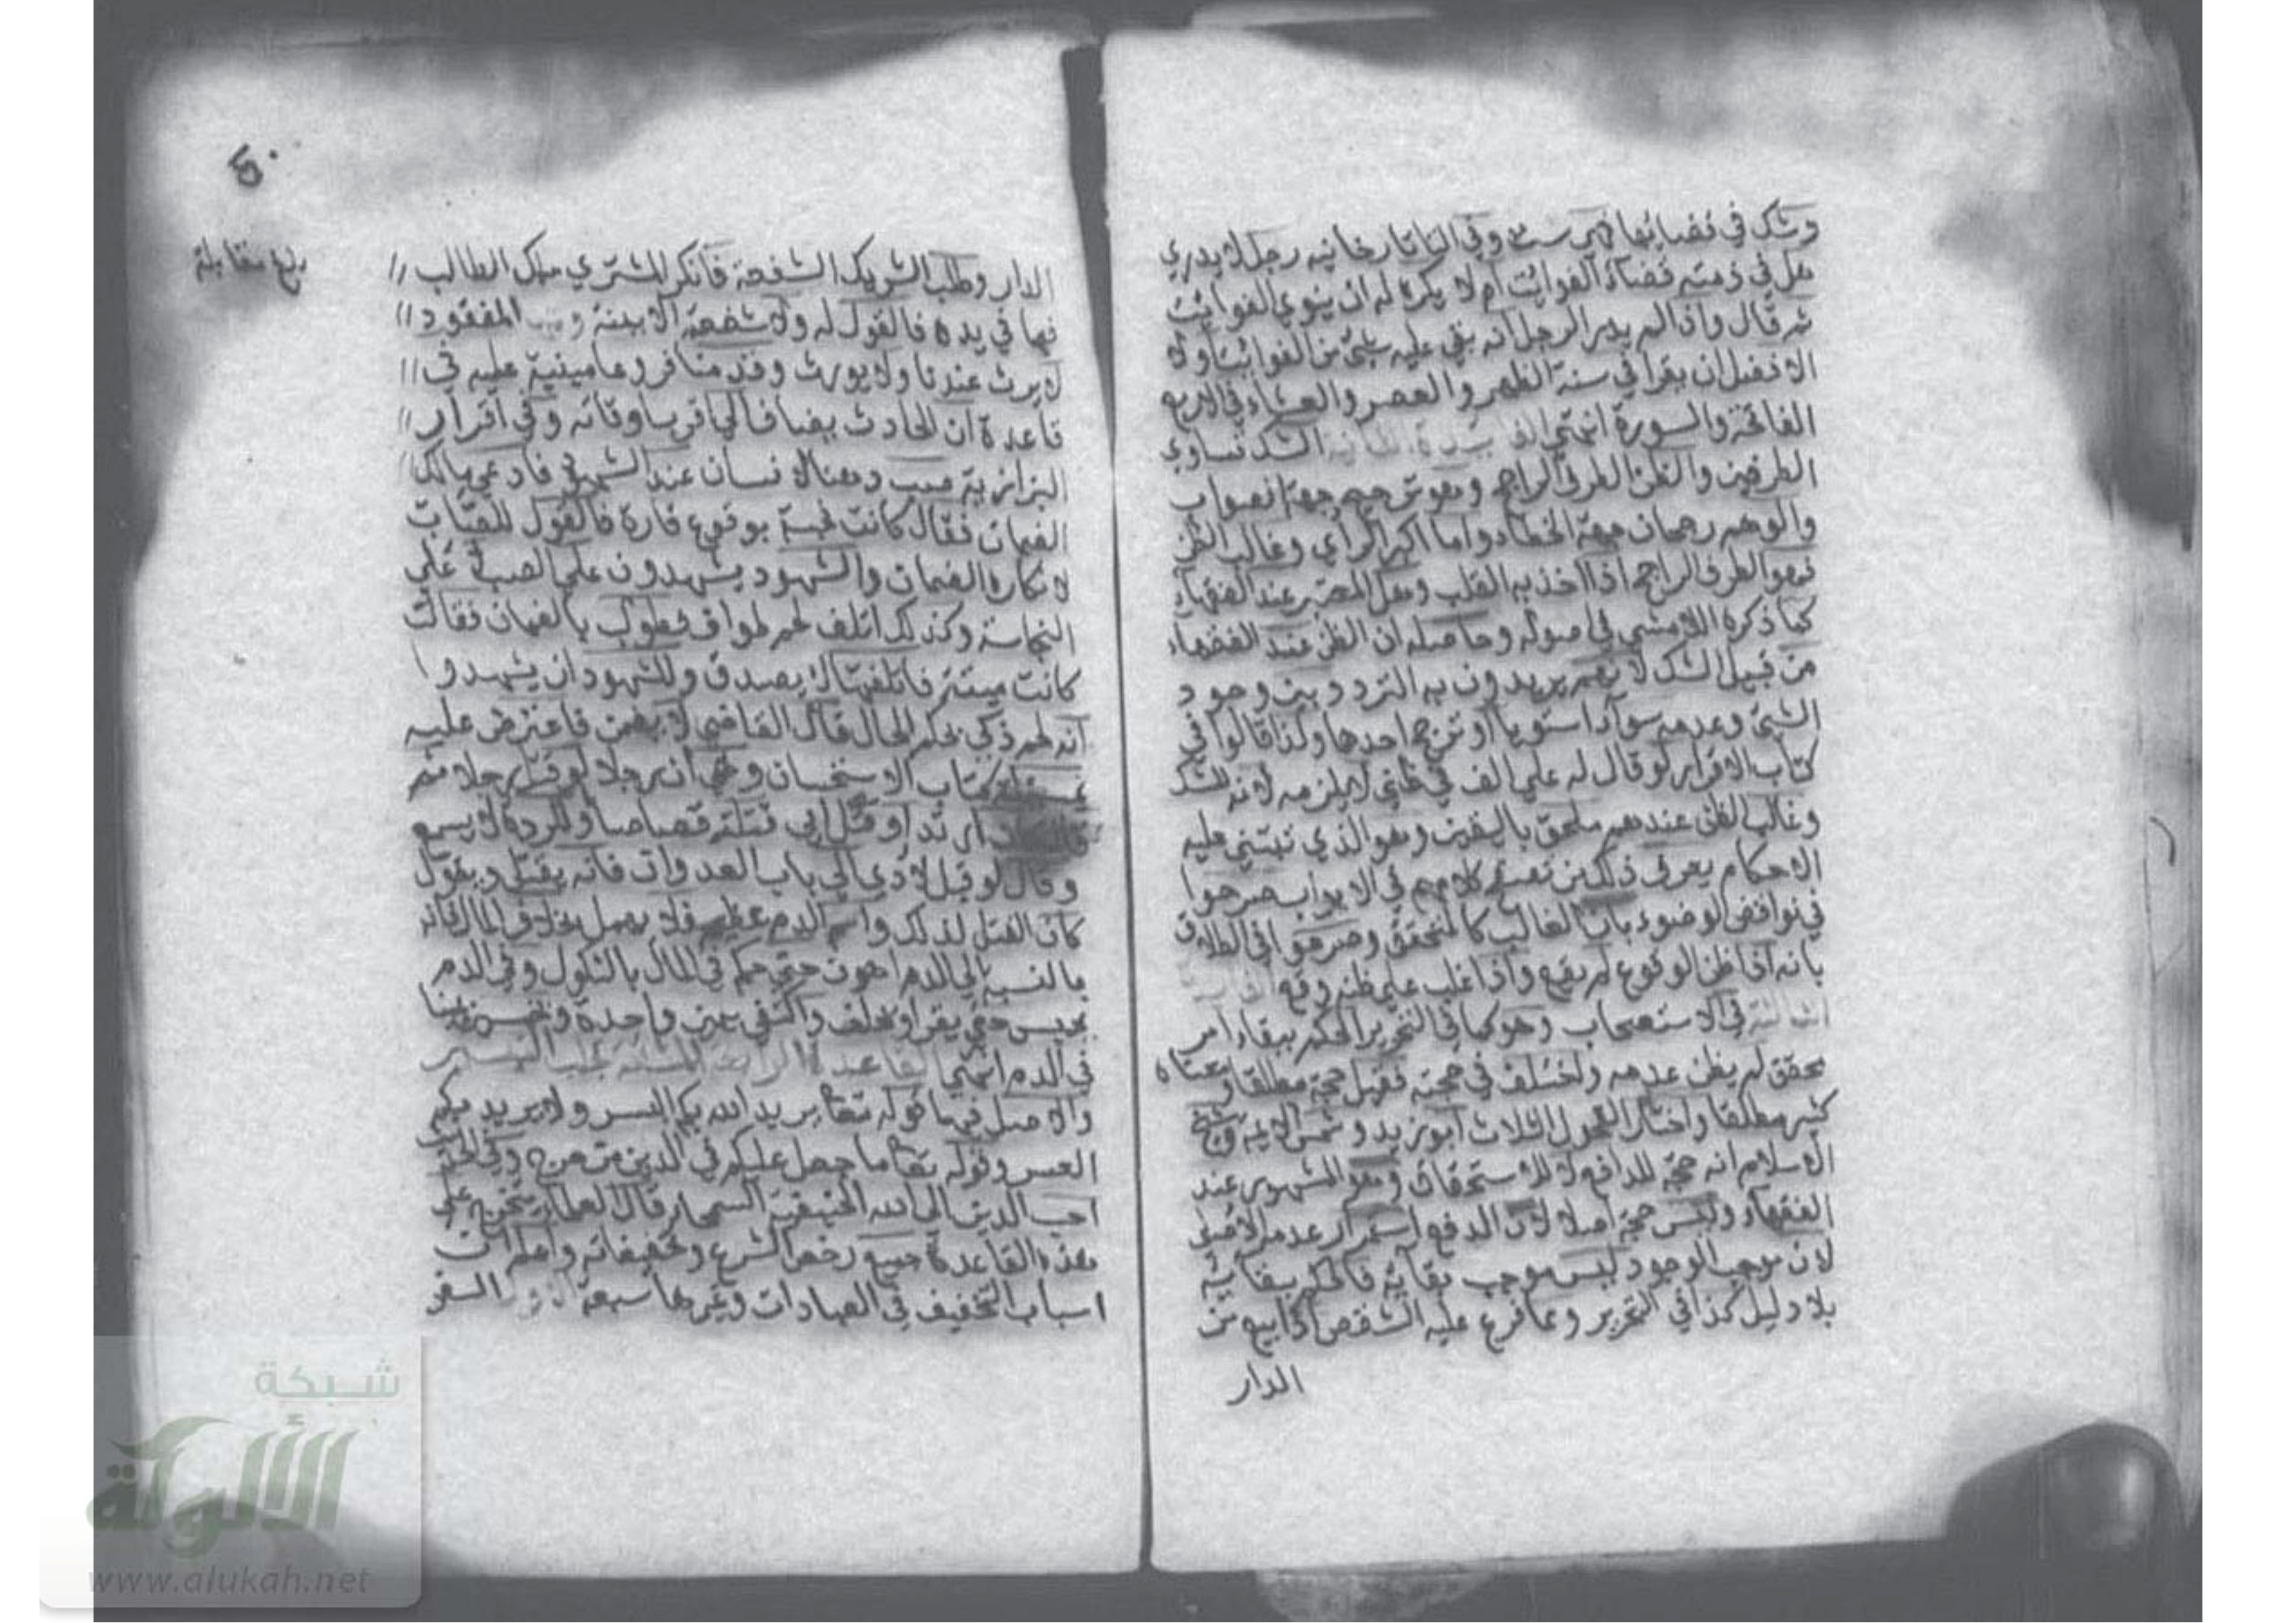 وشك في قضائها فهي ست وفي التاتارخانيه رجل لا يدري
هل في ذمته قضاء الفوائت ام لا يكره له ان ينوي الفوائت
ثم قال واذا لم يدر الرجل انه بقي عليه شئ من الفوائت او لا
الافضل ان يقرا في سنة الظهر والعصر والعشاء في الاربع
الفاتحة والسورة انتهى الشك تساوي
الطرفين والظن الطرف الراجح وهو ترجيح جهة الصواب
والوهم رجحان جهة الخطاء واما اكبر الراي وغالب الظن
فهو الطرف الراجح اذا اخذ به القلب وهو المعتبر عند الفقهاء
كما ذكره اللامشي في اصوله وحاصله ان الظن عند الفقهاء
من قبيل الشك لانهم يريدون به التردد بين وجود
الشئ وعدمه سواء استويا او ترجح احدهما وكذا قالوا في
كتاب الاقرار لو قال له علي الف في ظني لا يلزمه لانه للشك
وغالب الظن عندهم ملحق باليقين وهو الذي تبتني عليه
الاحكام يعرف ذلك من تصفح كلامهم في الابواب صرحوا
في نواقض الوضوء بان الغالب كالمتحقق وصرحوا في الطلاق
بانه اذا ظن الوقوع لم يقع واذا غلب على ظنه وقع
الثالثة في الاستصحاب وهو كما في التحرير الحكم ببقاء امر
محقق لم يظن عدمه واختلف في حجيته فقيل حجة مطلقا ونفاه
كثير مطلقا واختار الفحول الثلاث ابو زيد وشمس الايمة وشيخ
الاسلام انه حجة للدافع لا للاستحقاق وهو المشهور عند
الفقهاء وليس حجة اصلا لان الدفع استمرار عدمه الاصلي
لان موجب الوجود ليس موجب بقائه فالحكم ببقائه
بلا دليل كذا في التحرير ومما فرع عليه الشقص اذا بيع من
الدار
بلغ مقابلة
الدار وطلب الشريك الشفعة فانكر المشتري ملك الطالب
فيما في يده فالقول له ولا شفعة الا ببينة المفقود
لا يرث عندنا ولا يورث وقدمنا فروعا مبنية عليه في
قاعدة ان الحادث يضاف الى اقرب اوقاته وفي اقرار
البزازية صب دهنا لانسان عند الشهود فادعى مالكه
الضمان فقال كانت نجسة بوقوع فارة فالقول للصاب
لانكاره الضمان والشهود يشهدون على الصب لا على
النجاسة وكذلك اتلف لحم طواف فطولب بالضمان فقال
كانت ميتة فاتلفتها لا يصدق وللشهود ان يشهدوا
انه لحم ذكي بحكم الحال قال القاضي لا يضمن فاعترض عليه
كتاب الاستحسان وهي ان رجلا لو قتل رجلا ثم
ارتد او قتل ابي فقتلته قصاصا او للردة لا يسمع
وقال لو قبل لادى الى باب العدوان فانه يقتل ويقول
كان القتل لذلك وامر الدم عظيم فلا يهمل بخلاف المال فانه
بالنسبة الى الدم اهون حتى حكم في المال بالنكول وفي الدم
يحبس حتى يقر او يحلف واكتفي بيمين واحدة وبخمسين يمينا
في الدم انتهى القاعدة الرابعة المشقة تجلب التيسير
والاصل فيها قوله تعالى يريد الله بكم اليسر ولا يريد بكم
العسر وقوله تعالى ما جعل عليكم في الدين من حرج وفي الحديث
احب الدين الى الله الحنيفية السمحا قال العلما يتخرج على
هذه القاعدة جميع رخص الشرع وتخفيفاته واعلم ان
اسباب التخفيف في العبادات وغيرها سبعة السفر
شبكة
الألوكة
www.alukah.net